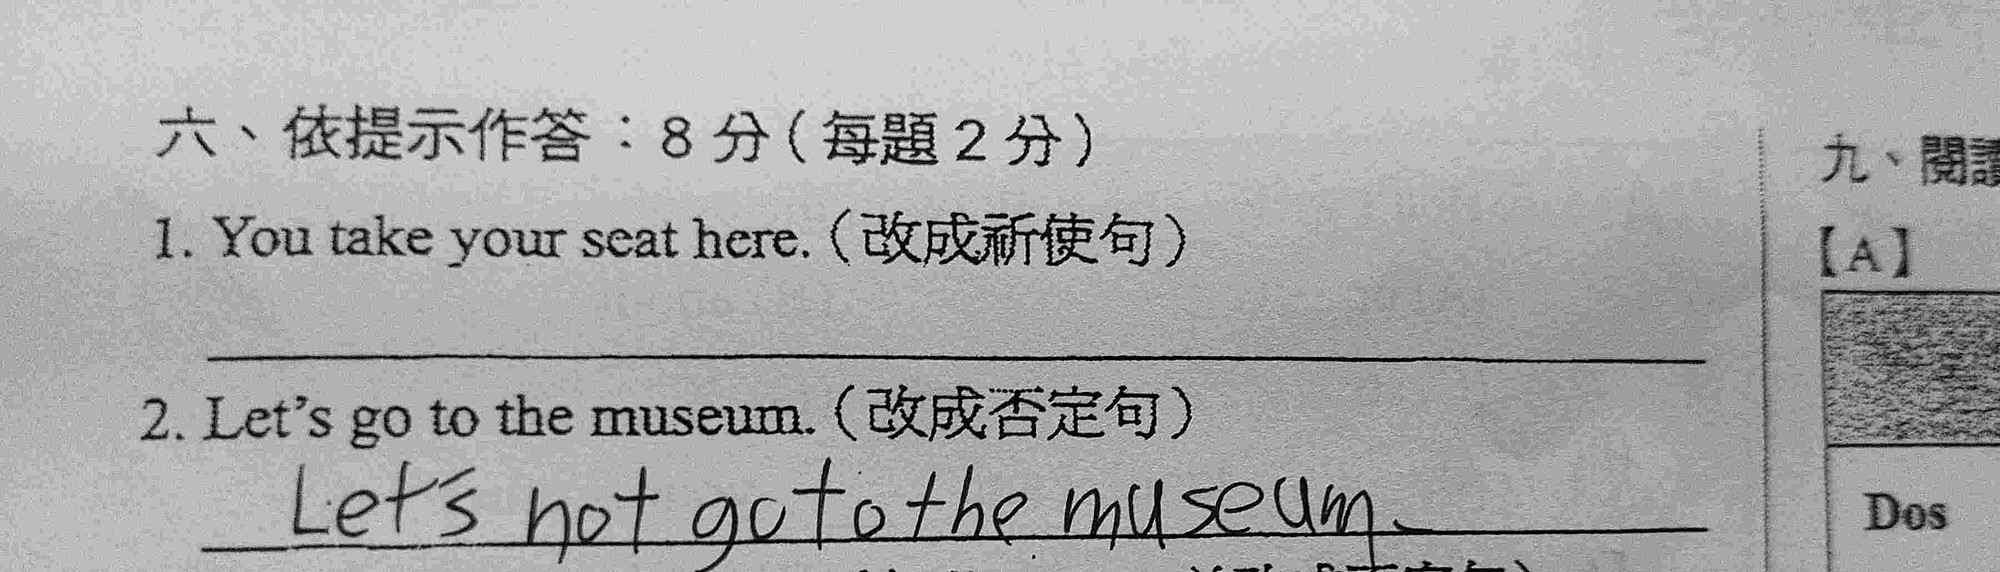 六、依提示作答：8 分（每題 2 分）
1. You take your seat here.（改成祈使句）
2. Let's go to the museum.（改成否定句）
Let's not go to the museum.
九、閱讀
【A】
Dos